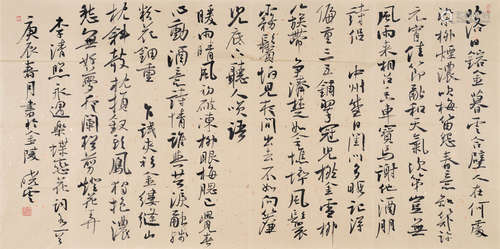 落日鎔金暮雲合璧人在何處
染柳烟濃吹梅笛怨春意知幾許
元宵佳節融和天氣次第豈無
風雨來相召香車寶馬謝他酒朋
詩侶 中州盛日閨門多暇記得
偏重三五鋪翠冠兒撚金雪柳
簇帶爭濟楚如今憔悴風鬟
霜鬢怕見夜間出去不如向簾
兒底下聽人笑語
暖雨晴風初破凍柳眼梅腮已覺春
心動酒意詩情誰與共淚融殘
粉花鈿重 乍試夾衫金縷縫山
枕斜欹枕損釵頭鳳獨抱濃
愁無好夢夜闌猶剪燈花弄
李清照永遇樂蝶戀花詞各一首
庚辰春月書於金陵